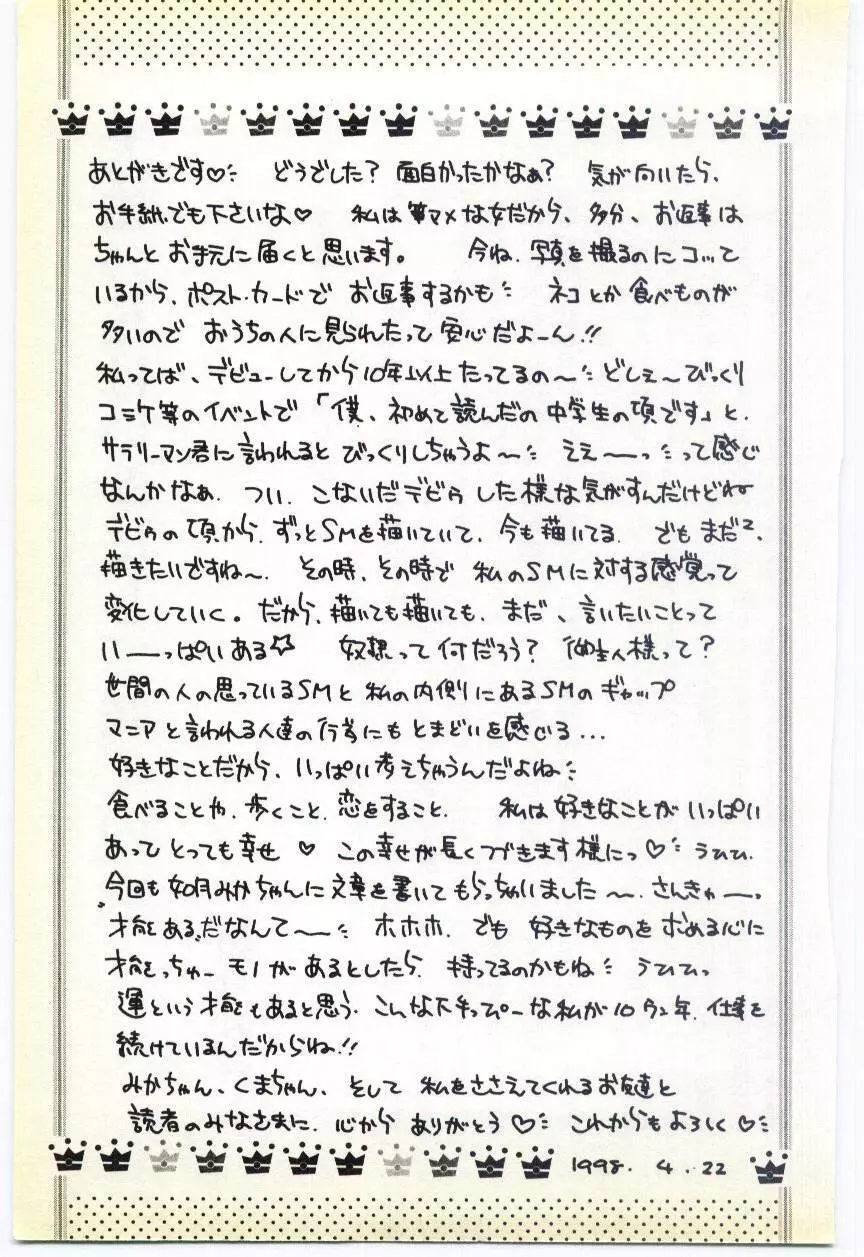 あとがきです♡ どうでした? 面白かったかなぁ? 気が向いたら、
お手紙でも下さいな♡ 私は筆マメな女だから、多分、お返事は
ちゃんとお手元に届くと思います。 今ね、写真を撮るのにコッて
いるから、ポスト・カードでお返事するかも ネコとか食べものが
多いので おうちの人に見られたって安心だよーん!!
私ってば、デビューしてから10年以上たってるの〜 どしぇ〜びっくり
コミケ等のイベントで「僕、初めて読んだの中学生の頃です」と、
サラリーマン君に言われると びっくりしちゃうよ〜 ええーーっって感じ
なんかなぁ、つい、こないだデビゥした様な気がすんだけどね
デビゥの頃から、ずっとSMを描いていて、今も描いてる、でもまだ2、
描きたいですね〜、その時、その時で 私のSMに対する感覚って
変化していく。だから、描いても描いても、まだ、言いたいことって
いーーっぱいある☆ 奴隷って何だろう? 御主人様って?
世間の人の思っているSMと 私の内側にあるSMのギャップ
マニアと言われる人達の行為にもとまどいを感じる...
好きなことだから、いっぱい考えちゃうんだよね
食べることや、歩くこと、恋をすること、 私は好きなことがいっぱい
あって とっても幸せ ♡ この幸せが長くつづきます様にっ♡ うひひ、
今回も 如月みかちゃんに文章を書いてもらっちゃいました〜、さんきゅーっ
"才能ある"だなんて〜 ホホホ、でも 好きなものを求める心に
才能っちゅーモノがあるとしたら、持ってるのかもね うひひっ
運という才能もあると思う、こんな下手っぴーな私が10ウン年、仕事を
続けているんだからね!!
みかちゃん、くまちゃん、そして 私をささえてくれるお友達と
読者のみなさまに、心から ありがとう♡ これからもよろしく♡
1998. 4. 22